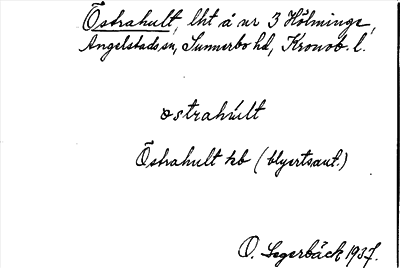 Östrahult, lht å nr 3 Hölminge,
Angelstads sn, Sunnerbo hd, Kronob. l.
ostrahult
Östrahult kb (blyertsant.)
O. Segerbäck 1937.